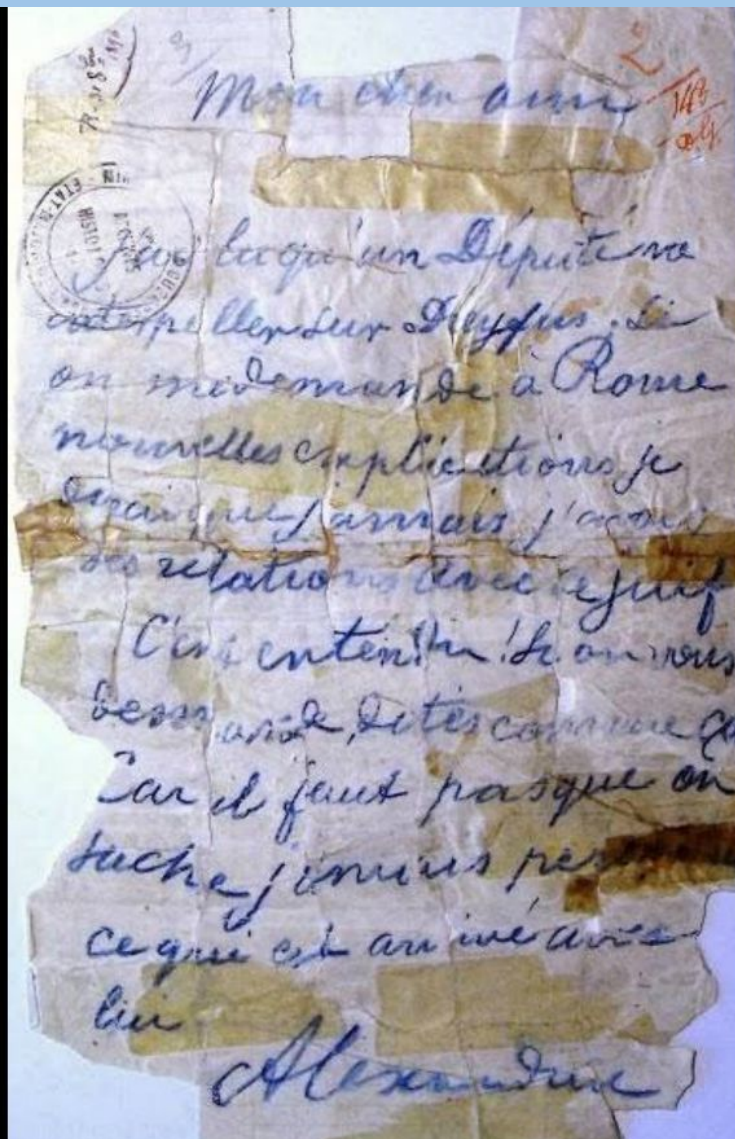 2
Mon cher ami
J'ai lu qu'un Député va
interpeller sur Dreyfus. Si
on me demande à Rome
nouvelles explications je
dirai que jamais j'avais
des relations avec ce juif
C'est entendu! Si on vous
demande, dites comme ça
Car il faut pas que on
sache jamais
ce qui est arrivé avec
lui
Alexandrine